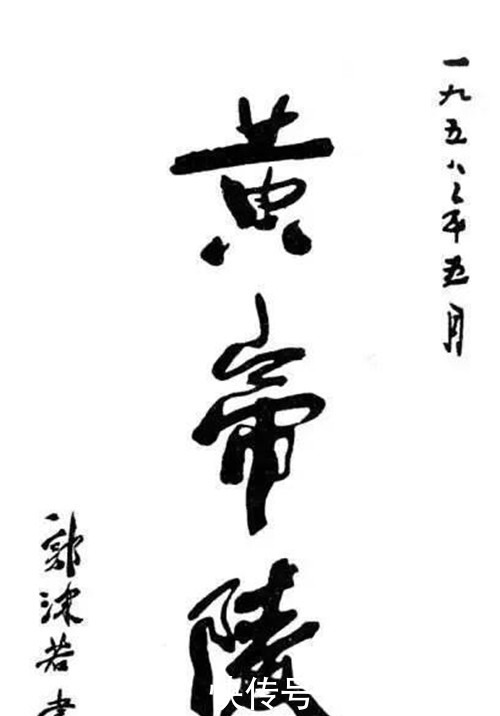 一九五八年五月
黄帝陵
郭沫若書
快传号